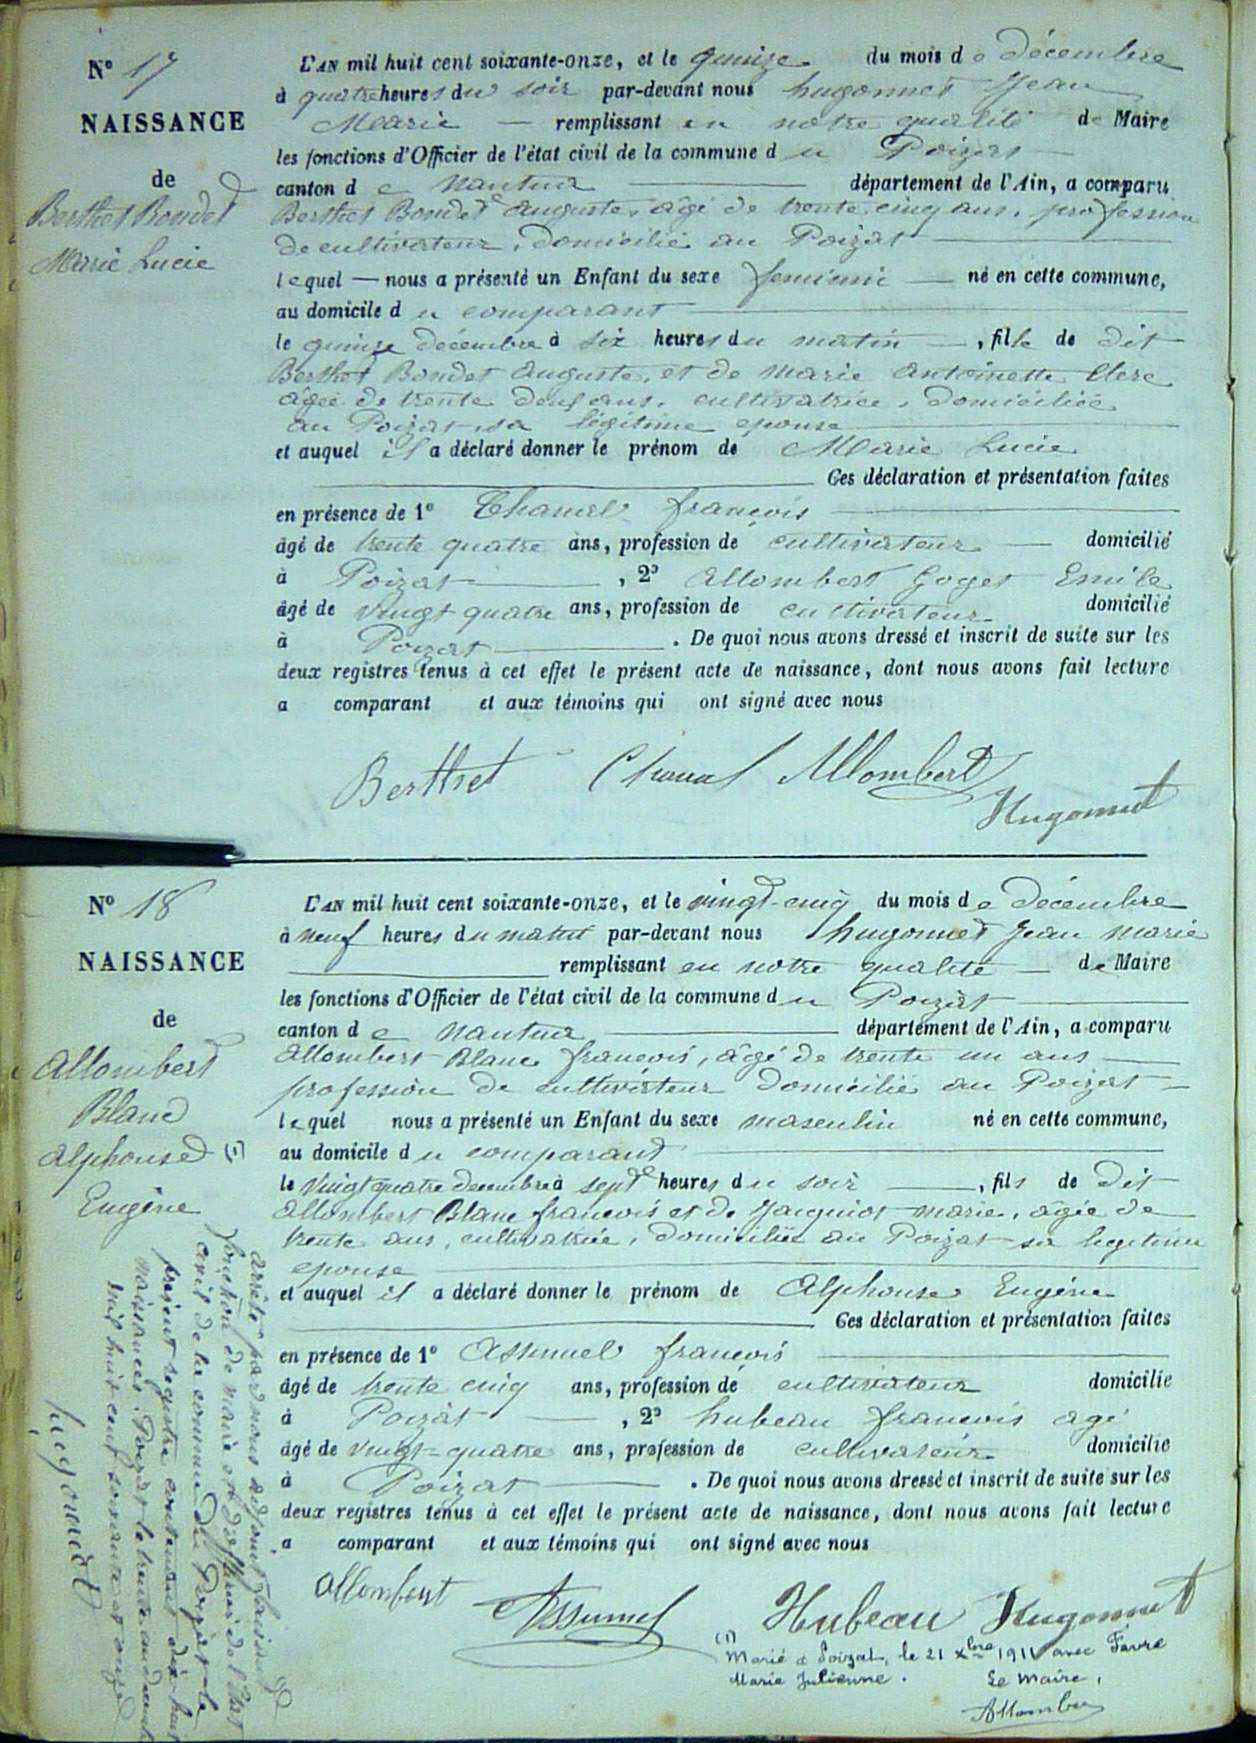 N° 17
NAISSANCE
de
Berthet Bondet
Marie Lucie
L'AN mil huit cent soixante-onze, et le quinze du mois de décembre
à quatre heures du soir par-devant nous hugonnet Jean
Marie — remplissant en notre qualité de Maire
les fonctions d'Officier de l'état civil de la commune du Poizat
canton de Nantua département de l'Ain, a comparu
Berthet Bondet Auguste, âgé de trente cinq ans, profession
de cultivateur, domicilié au Poizat
lequel — nous a présenté un Enfant du sexe feminin — né en cette commune,
au domicile du comparant
le quinze décembre à six heures du matin —, fille de dit
Berthet Bondet Auguste, et de Marie Antoinette Clerc
agée de trente deux ans, cultivatrice, domiciliée
au Poizat, sa légitime epouse
et auquel il a déclaré donner le prénom de Marie Lucie
Ces déclaration et présentation faites
en présence de 1° Chanel françois
âgé de trente quatre ans, profession de cultivateur — domicilié
à Poizat, 2° Allombert Goget Emile
âgé de vingt quatre ans, profession de cultivateur domicilié
à Poizat. De quoi nous avons dressé et inscrit de suite sur les
deux registres tenus à cet effet le présent acte de naissance, dont nous avons fait lecture
a comparant et aux témoins qui ont signé avec nous
Berthet Chanel Allombert
Hugonnet
N° 18
NAISSANCE
de
Allombert
Blanc
Alphonse (1)
Eugène
L'AN mil huit cent soixante-onze, et le vingt-cinq du mois de décembre
à neuf heures du matin par-devant nous hugonnet Jean marie
remplissant en notre qualité — de Maire
les fonctions d'Officier de l'état civil de la commune du Poizat
canton de Nantua département de l'Ain, a comparu
Allombert Blanc françois, âgé de trente un ans
profession de cultivateur domicilié au Poizat —
lequel nous a présenté un Enfant du sexe masculin né en cette commune,
au domicile du comparant
le vingt quatre decembre à sept heures du soir —, fils de dit
Allombert Blanc françois et de Jacquiot marie, agée de
trente ans, cultivatrice, domiciliée au Poizat sa legitime
epouse
et auquel il a déclaré donner le prénom de Alphonse Eugène
Ces déclaration et présentation faites
en présence de 1° Assumel françois
âgé de trente cinq ans, profession de cultivateur domicilié
à Poizat —, 2° hubeau françois agé
âgé de vingt-quatre ans, profession de cultivateur domicilié
à Poizat. De quoi nous avons dressé et inscrit de suite sur les
deux registres tenus à cet effet le présent acte de naissance, dont nous avons fait lecture
a comparant et aux témoins qui ont signé avec nous
Allombert Assumel Hubeau Hugonnet
(1)
Marié à Poizat, le 21 Xbre 1911 avec Favre
Marie Julienne. Le Maire,
Allombert
arrêté par nous adjoint faisant
fonction de maire et d'officier de l'état
civil de la commune du Poizat le
présent registre contenant dix-huit
naissances. Poizat le trente un decembre
mil huit cent soixante et onze
hugonnet